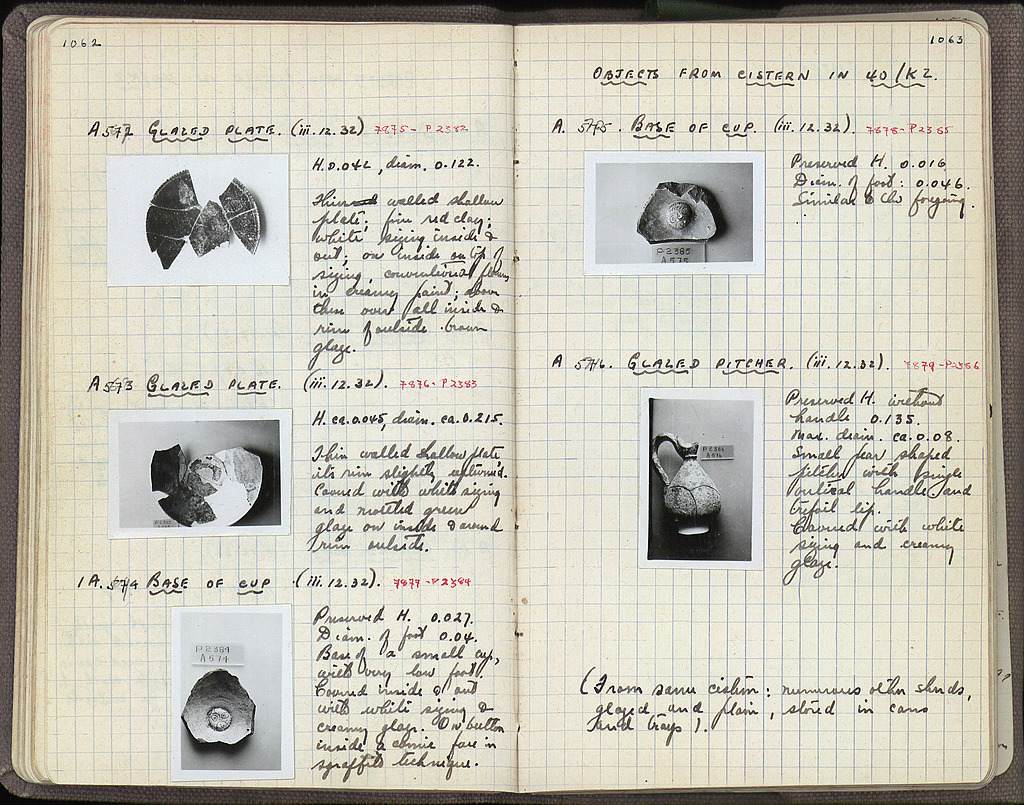 1062
A 572 GLAZED PLATE. (iii.12.32) 7875 - P 2382
H. 0.042, diam. 0.122.
Thin walled shallow
plate; fine red clay;
white sizing inside &
out; on inside on top of
sizing, conventional flower
in creamy paint; above
these over all inside &
rim of outside brown
glaze.
A 573 GLAZED PLATE. (iii.12.32). 7876 - P 2383
H. ca. 0.045, diam. ca. 0.215.
Thin walled shallow plate
its rim slightly upturned.
Covered with white sizing
and mottled green
glaze on inside & around
rim outside.
A. 574 BASE OF CUP (iii.12.32). 7877 - P 2384
P 2384
A 574
Preserved H. 0.027.
Diam. of foot 0.04.
Base of a small cup,
with very low foot.
Covered inside & out
with white sizing &
creamy glaze. On button
inside a comic face in
sgraffito technique.
1063
OBJECTS FROM CISTERN IN 40/KZ.
A. 575. BASE OF CUP. (iii.12.32). 7878 - P 2385
P 2385
A 575
Preserved H. 0.016
Diam. of foot: 0.046.
Similar to the foregoing.
A 576. GLAZED PITCHER. (iii.12.32). 7879 - P 2386
P 2386
A 576
Preserved H. without
handle 0.135.
Max. diam. ca. 0.08.
Small pear shaped
pitcher with single
vertical handle and
trefoil lip.
Covered with white
sizing and creamy
glaze.
(From same cistern: numerous other sherds,
glazed and plain, stored in cans
and trays).